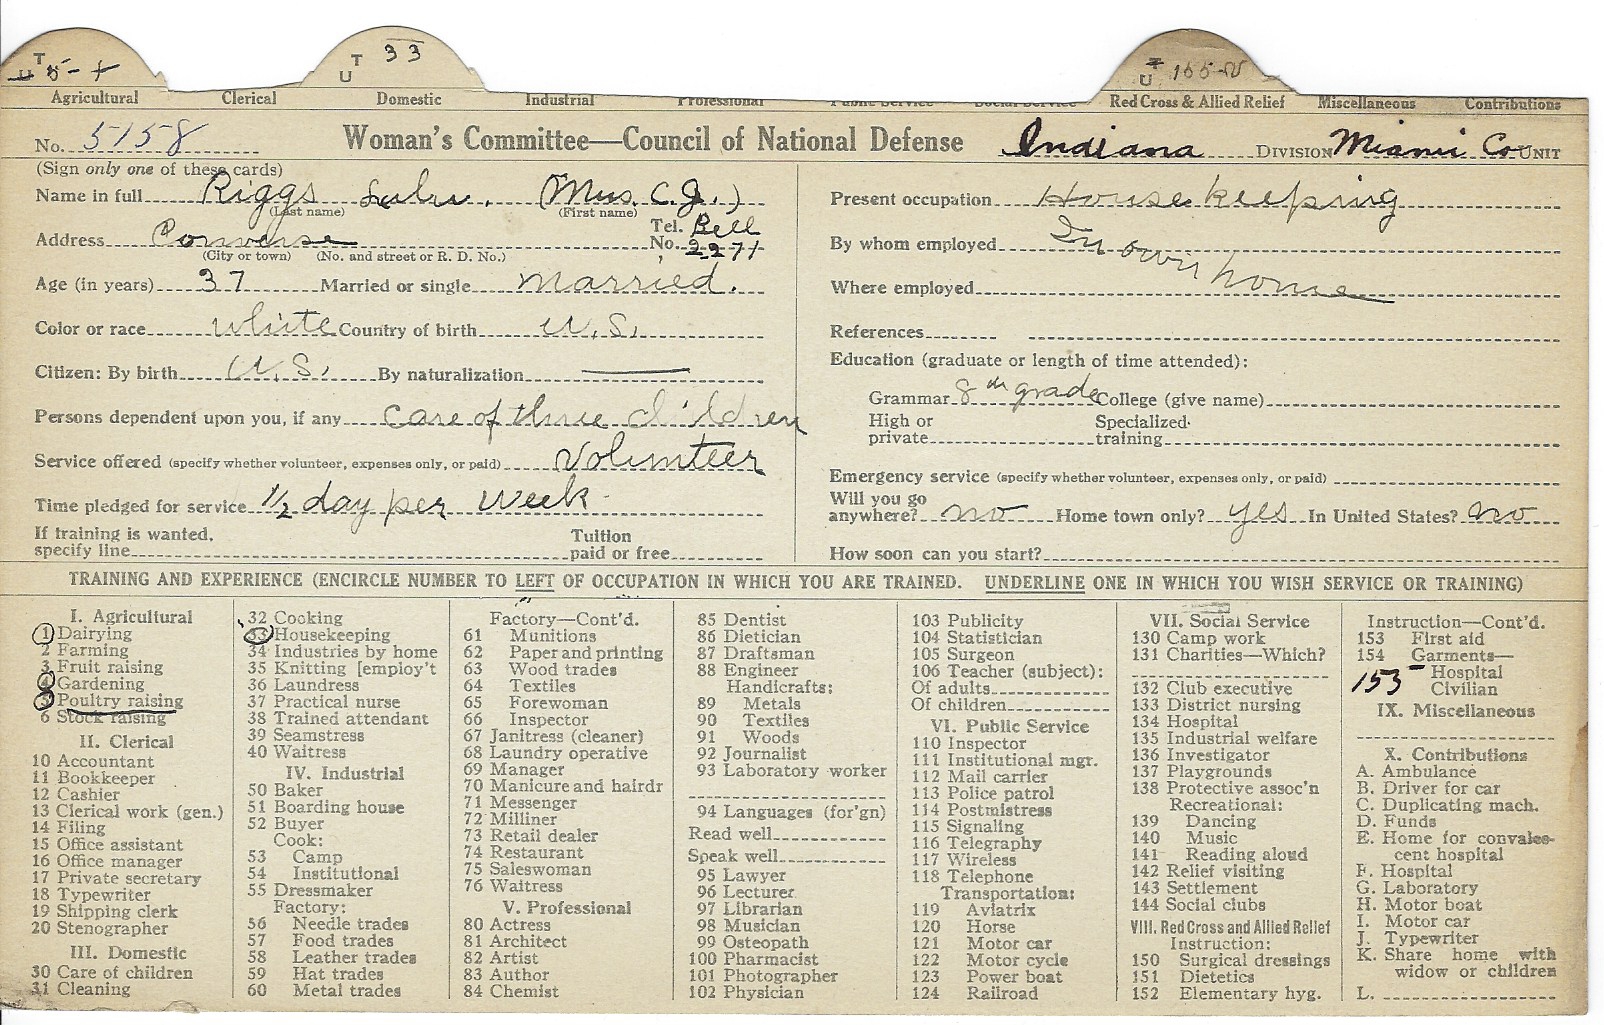 T
U 5 - +
T 33
U
T
U 155-
Agricultural Clerical Domestic Industrial Professional Public Service Social Service Red Cross & Allied Relief Miscellaneous Contributions
No. 5158 Woman's Committee—Council of National Defense Indiana DIVISION Miami Co UNIT
(Sign only one of these cards)
Name in full Riggs Lulu. (Mrs. C. J.)
(Last name) (First name)
Address Converse Tel. No. Bell 2271
(City or town) (No. and street or R. D. No.)
Age (in years) 37 Married or single married.
Color or race white Country of birth U.S.
Citizen: By birth U.S. By naturalization ——
Persons dependent upon you, if any Care of three children
Service offered (specify whether volunteer, expenses only, or paid) Volunteer
Time pledged for service 1/2 day per week
If training is wanted, specify line Tuition paid or free
Present occupation House keeping
By whom employed In own home
Where employed
References
Education (graduate or length of time attended):
Grammar 8th grade College (give name)
High or private Specialized training
Emergency service (specify whether volunteer, expenses only, or paid)
Will you go anywhere? no Home town only? yes In United States? no
How soon can you start?
TRAINING AND EXPERIENCE (ENCIRCLE NUMBER TO LEFT OF OCCUPATION IN WHICH YOU ARE TRAINED. UNDERLINE ONE IN WHICH YOU WISH SERVICE OR TRAINING)
I. Agricultural
1 Dairying
2 Farming
3 Fruit raising
4 Gardening
5 Poultry raising
6 Stock raising
II. Clerical
10 Accountant
11 Bookkeeper
12 Cashier
13 Clerical work (gen.)
14 Filing
15 Office assistant
16 Office manager
17 Private secretary
18 Typewriter
19 Shipping clerk
20 Stenographer
III. Domestic
30 Care of children
31 Cleaning
32 Cooking
33 Housekeeping
34 Industries by home
35 Knitting [employ't
36 Laundress
37 Practical nurse
38 Trained attendant
39 Seamstress
40 Waitress
IV. Industrial
50 Baker
51 Boarding house
52 Buyer
Cook:
53 Camp
54 Institutional
55 Dressmaker
Factory:
56 Needle trades
57 Food trades
58 Leather trades
59 Hat trades
60 Metal trades
Factory—Cont'd.
61 Munitions
62 Paper and printing
63 Wood trades
64 Textiles
65 Forewoman
66 Inspector
67 Janitress (cleaner)
68 Laundry operative
69 Manager
70 Manicure and hairdr
71 Messenger
72 Milliner
73 Retail dealer
74 Restaurant
75 Saleswoman
76 Waitress
V. Professional
80 Actress
81 Architect
82 Artist
83 Author
84 Chemist
85 Dentist
86 Dietician
87 Draftsman
88 Engineer
Handicrafts:
89 Metals
90 Textiles
91 Woods
92 Journalist
93 Laboratory worker
94 Languages (for'gn)
Read well
Speak well
95 Lawyer
96 Lecturer
97 Librarian
98 Musician
99 Osteopath
100 Pharmacist
101 Photographer
102 Physician
103 Publicity
104 Statistician
105 Surgeon
106 Teacher (subject):
Of adults
Of children
VI. Public Service
110 Inspector
111 Institutional mgr.
112 Mail carrier
113 Police patrol
114 Postmistress
115 Signaling
116 Telegraphy
117 Wireless
118 Telephone
Transportation:
119 Aviatrix
120 Horse
121 Motor car
122 Motor cycle
123 Power boat
124 Railroad
VII. Social Service
130 Camp work
131 Charities—Which?
132 Club executive
133 District nursing
134 Hospital
135 Industrial welfare
136 Investigator
137 Playgrounds
138 Protective assoc'n
Recreational:
139 Dancing
140 Music
141 Reading aloud
142 Relief visiting
143 Settlement
144 Social clubs
VIII. Red Cross and Allied Relief
Instruction:
150 Surgical dressings
151 Dietetics
152 Elementary hyg.
Instruction—Cont'd.
153 First aid
154 Garments—
155 Hospital
Civilian
IX. Miscellaneous
X. Contributions
A. Ambulance
B. Driver for car
C. Duplicating mach.
D. Funds
E. Home for convalescent hospital
F. Hospital
G. Laboratory
H. Motor boat
I. Motor car
J. Typewriter
K. Share home with widow or children
L.